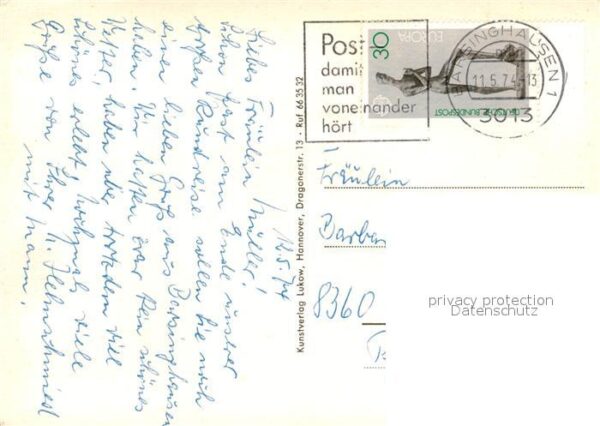 12.5.74
Liebes Fräulein Müller!
Schon fast am Ende unserer
großen Rundreise sollen Sie noch
einen lieben Gruß aus Barsinghausen
haben. Wir hatten zwar kein schönes
Wetter, haben aber trotzdem viel
schönes erlebt. Nochmals viele
Grüße von Ihrer H.
mit Mann.
Kunstverlag Lukow, Hannover, Dragonerstr. 13 - Ruf 66 35 32
Post
damit
man
voneinander
hört
30
EUROPA
DEUTSCHE BUNDESPOST
BARSINGHAUSEN 1
11.5.74-13
3013
Fräulein
Barba
8360
privacy protection
Datenschutz